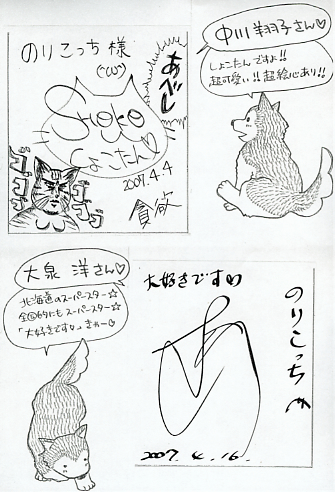 のりこっち様
(・ω・)
あべし
Shoko
しょこたん♡
2007.4.4
貪欲
ゴゴゴ
ゴゴゴ
中川翔子さん♡
しょこたんですよ!!
超可愛い!!超絵心あり!!
大泉 洋さん♡
北海道のスーパースター☆
全国的にもスーパースター☆
「大好きです♡」きゃー♡
大好きです♡
のりこっち
2007.4.16.